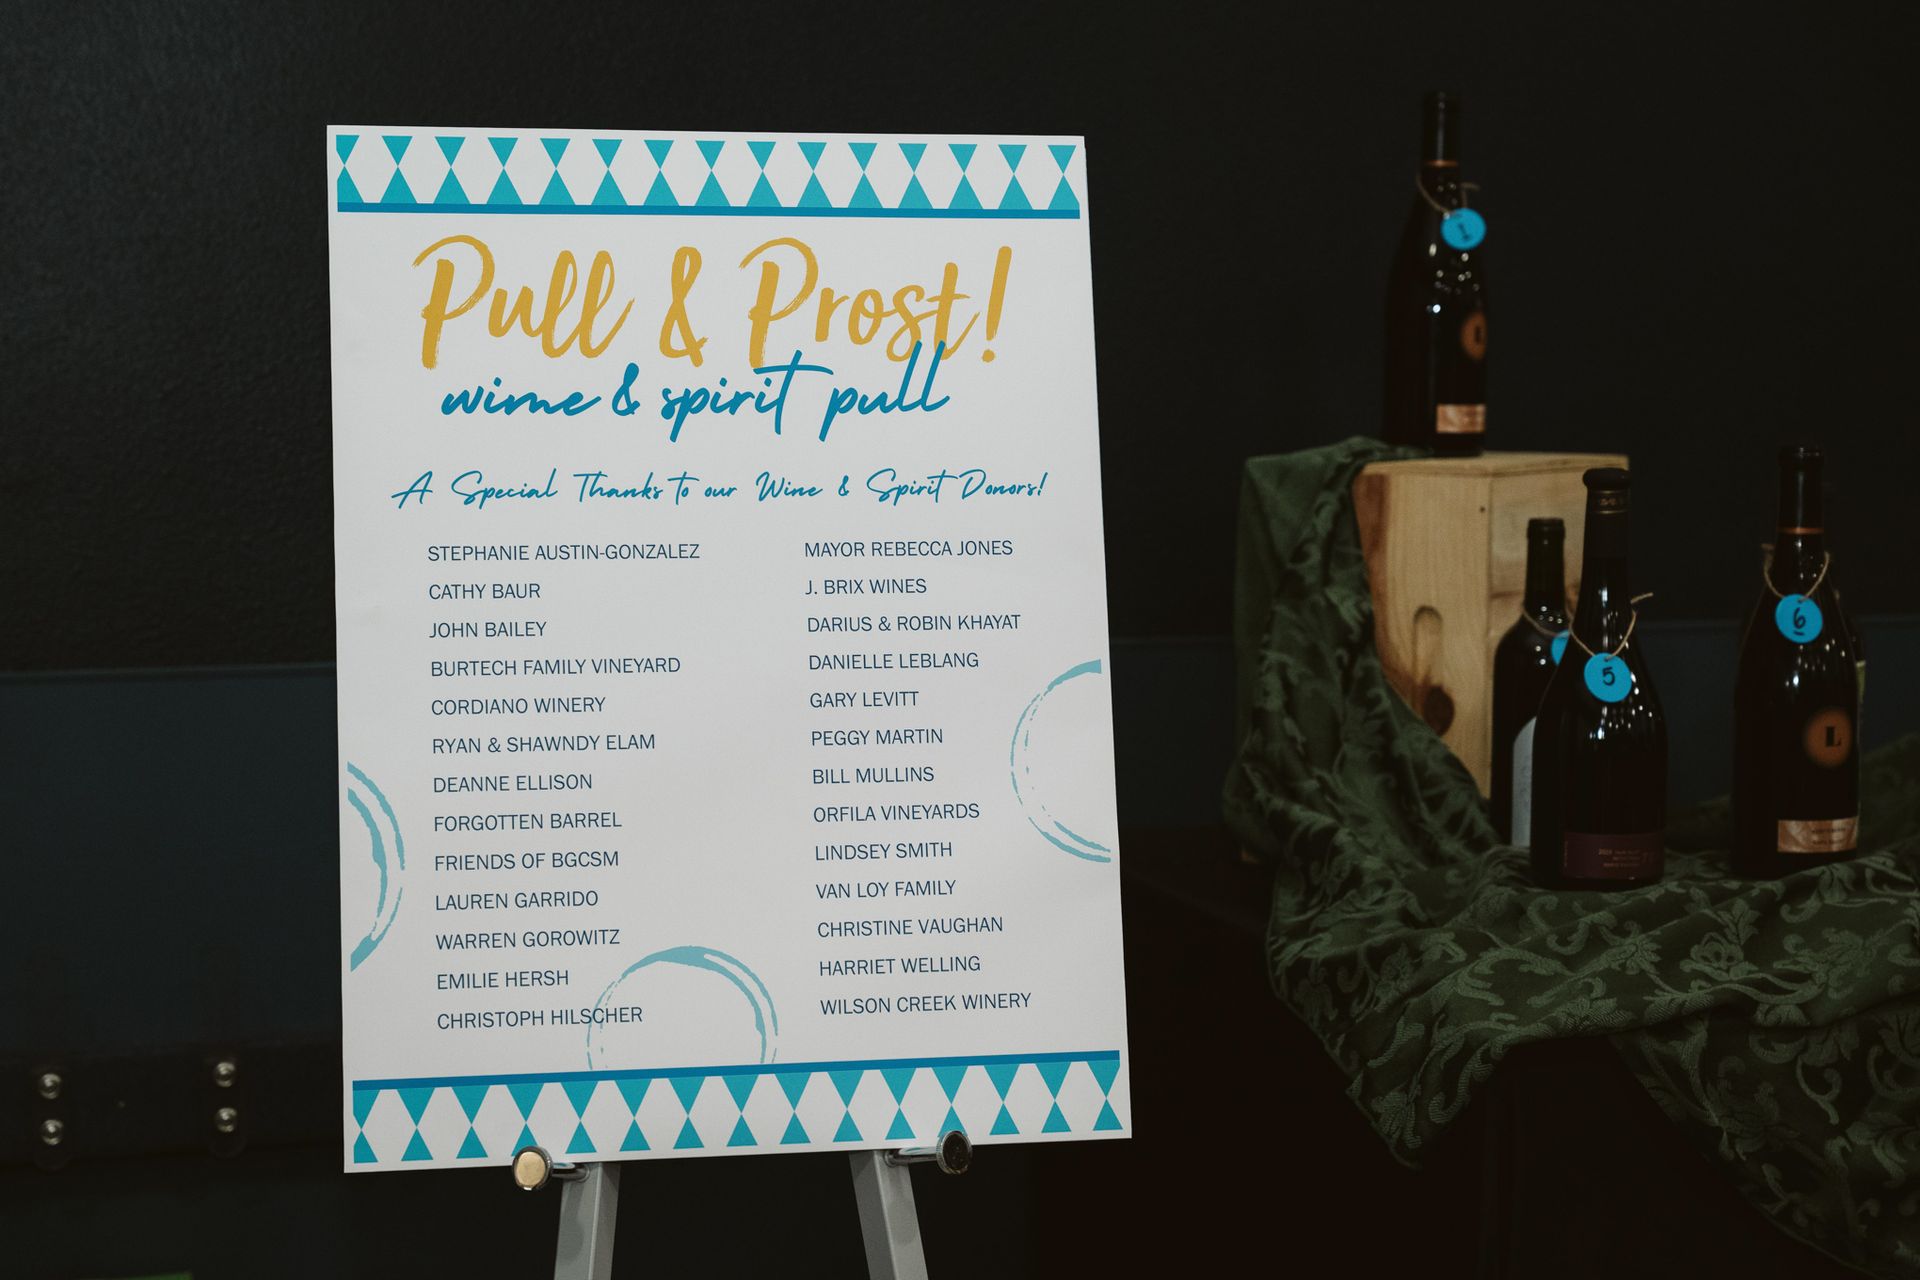 Pull & Prost!
wine & spirit pull
A Special Thanks to our Wine & Spirit Donors!
STEPHANIE AUSTIN-GONZALEZ
CATHY BAUR
JOHN BAILEY
BURTECH FAMILY VINEYARD
CORDIANO WINERY
RYAN & SHAWNDY ELAM
DEANNE ELLISON
FORGOTTEN BARREL
FRIENDS OF BGCSM
LAUREN GARRIDO
WARREN GOROWITZ
EMILIE HERSH
CHRISTOPH HILSCHER
MAYOR REBECCA JONES
J. BRIX WINES
DARIUS & ROBIN KHAYAT
DANIELLE LEBLANG
GARY LEVITT
PEGGY MARTIN
BILL MULLINS
ORFILA VINEYARDS
LINDSEY SMITH
VAN LOY FAMILY
CHRISTINE VAUGHAN
HARRIET WELLING
WILSON CREEK WINERY
1
5
6
L